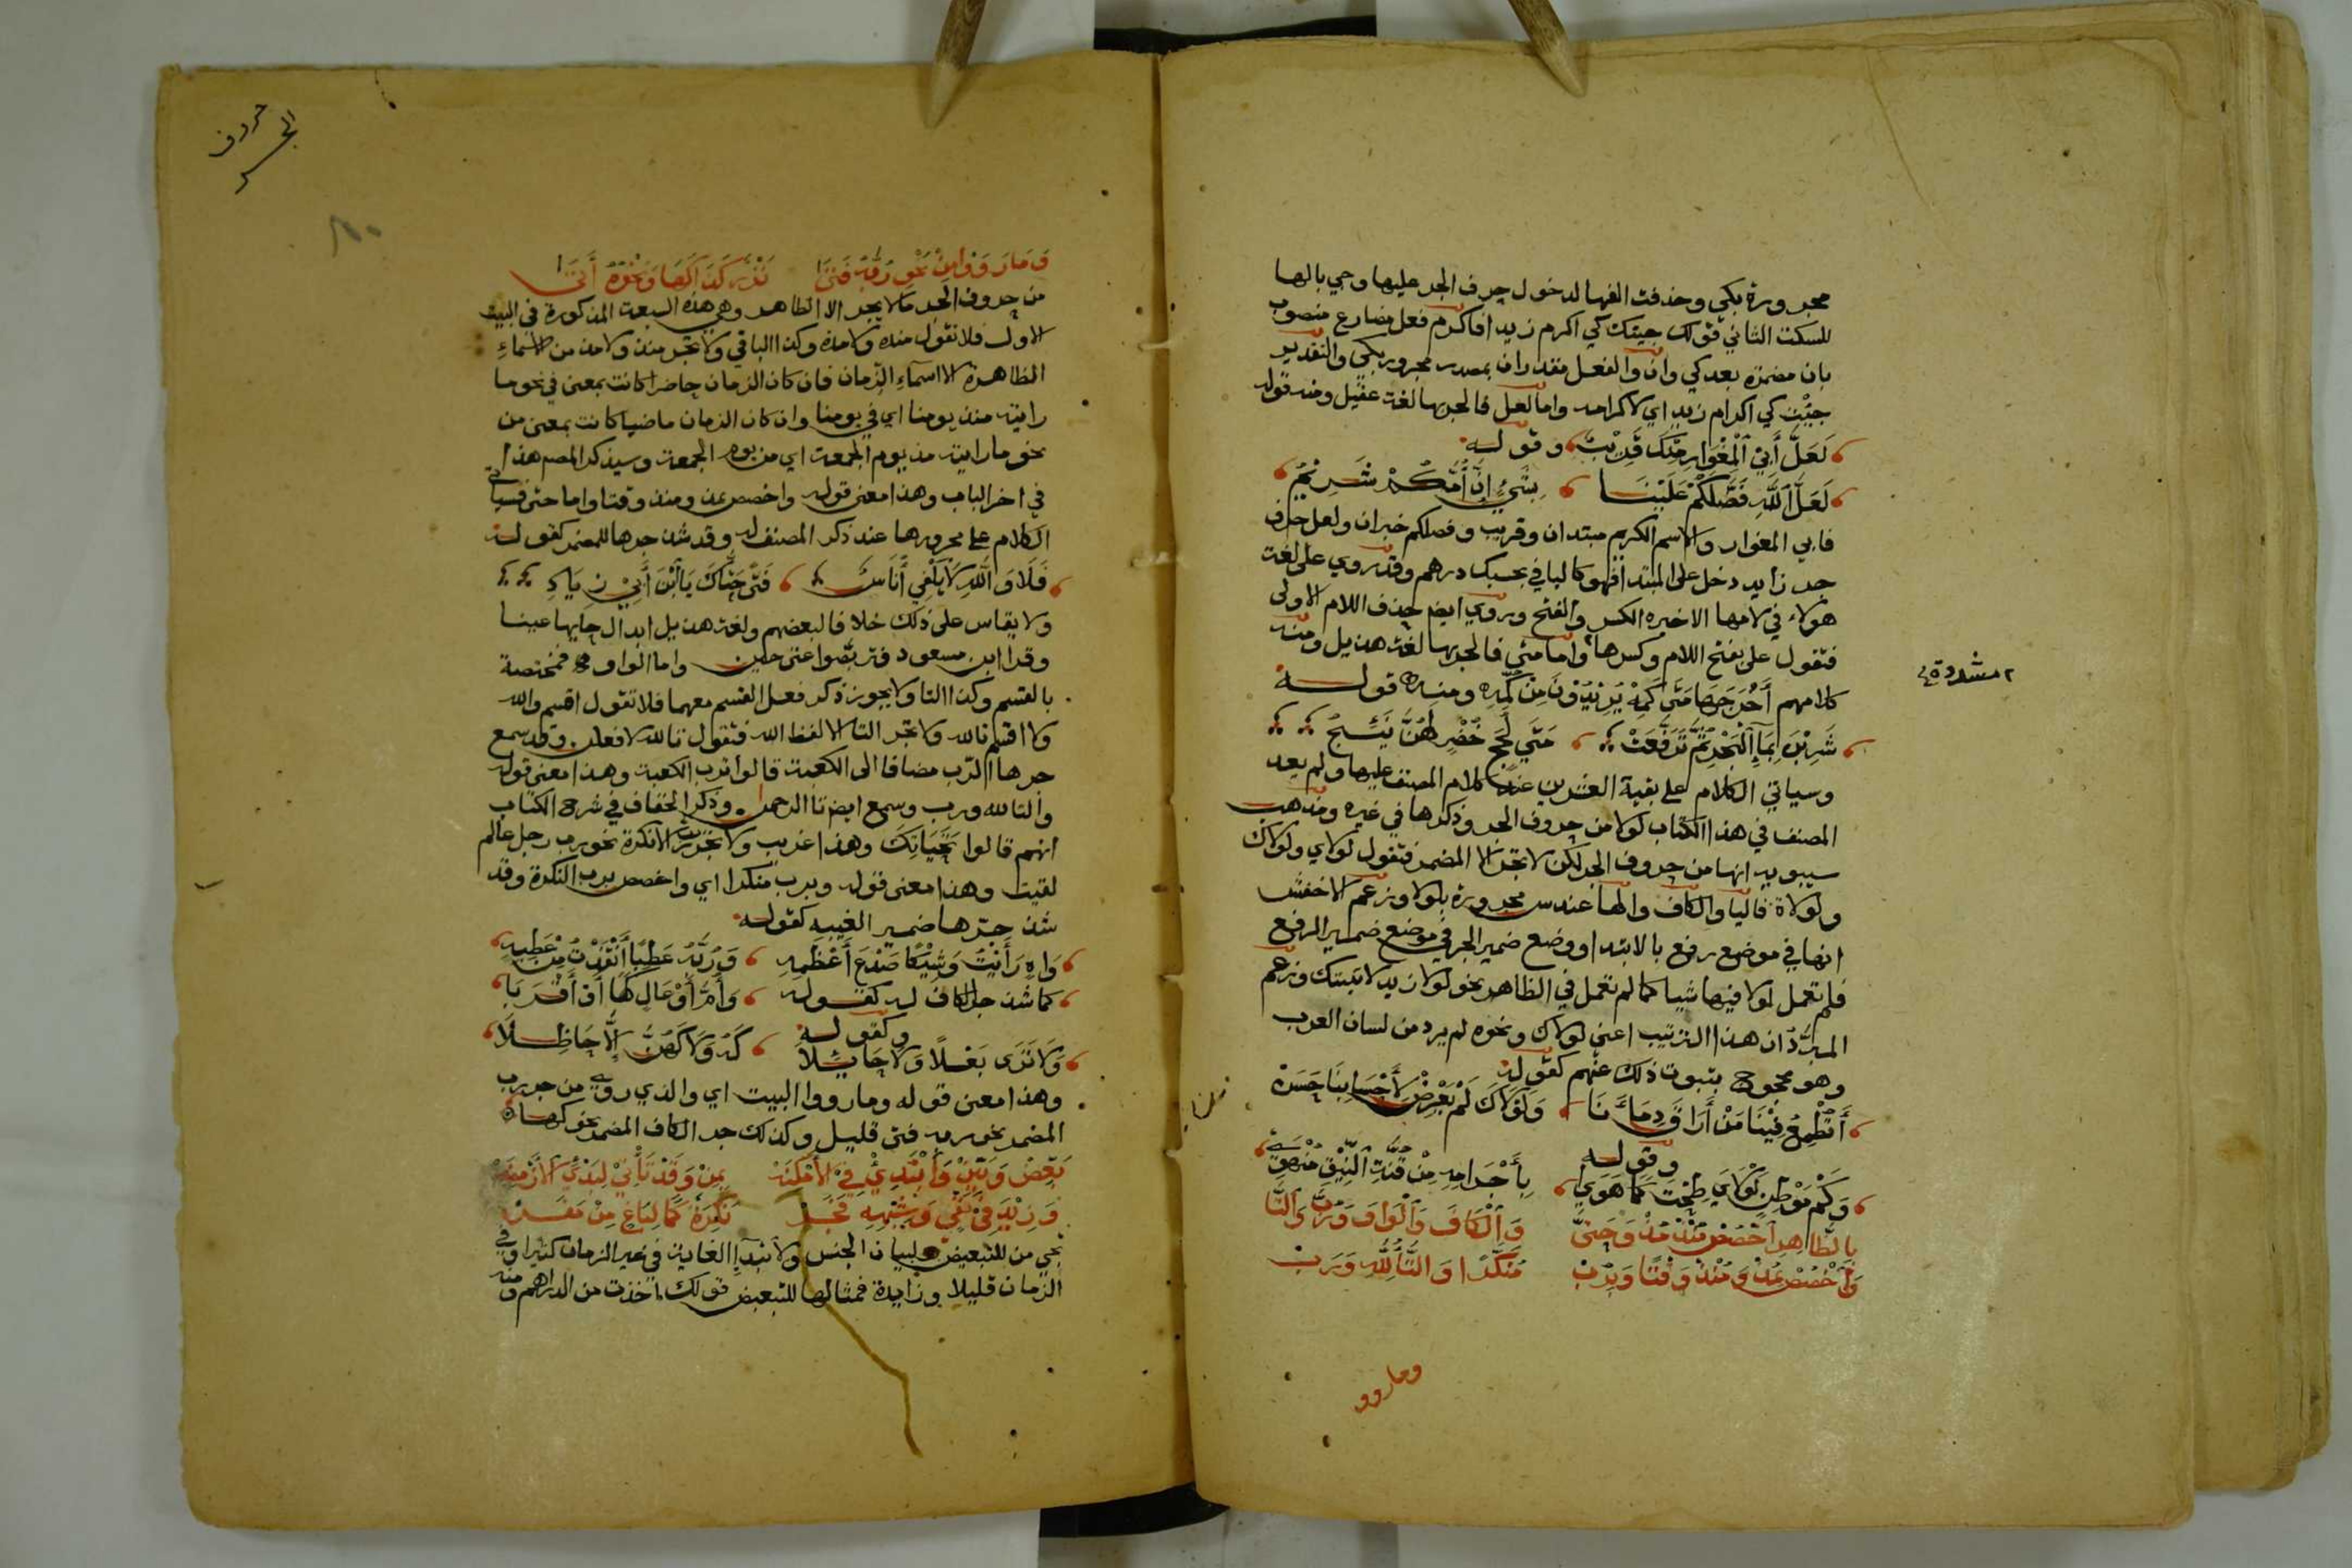 مجرورة بكي وحذفت الفها لدخول حرف الجر عليها وجي بالها
للسكت الثاني قولك جيتك كي اكرم زيدا فاكرم فعل مضارع منصوب
بان مضمرة بعد كي وان والفعل مقدران بمصدر مجرور بكي والتقدير
جيت كي اكرام زيد اي لاكرامه واما لعل فالجر بها لغة عقيل ومنه قوله
لَعَلَّ أَبِي اْلمِغْوَارِ مِنْكَ قَرِيْبُ وقوله
لَعَلَّ اللَّهِ فَضَّلَكُمْ عَلَيْنَا بِشَيْءٍ إِنَّ أُمَّكُمْ شَرِيْمُ
فابي المغوار والاسم الكريم مبتدان وقريب وفضلكم خبران ولعل حرف
جر زايد دخل على المبتدا فهو كالبا في بحسبك درهم وقد روي على لغة
هولاء في لامها الاخيره الكسر والفتح وروي ايض حذف اللام الاولى
فتقول عل بفتح اللام وكسرها واما متي فالجر بها لغة هذيل ومنه
٢ مشددة
كلامهم أَخْرَجَهَا مَتَى كُمِّهْ يُرِيْدُوْنَ مِنْ كُمِّهِ ومنه قوله
شَرِبْنَ بِمَاءِ الْبَحْرِ ثُمَّ تَرَفَّعَتْ مَتَي لُجَجٍ خُضْرٍ لَهُنَّ نَئِيْجُ
وسياتي الكلام على بقية العشرين عند كلام المصنف عليها ولم يعد
المصنف في هذا الكتاب لولا من حروف الجر وذكرها في غيره ومذهب
سيبويه انها من حروف الجر لكن لا تجر الا المضمر فتقول لولاي ولولاك
ولولاه فاليا والكاف والها عند س مجرورة بلولا وزعم الاخفش
انها في موضع رفع بالابتدا ووضع ضمير الجر في موضع ضمير الرفع
فلم تعمل لولا فيها شيا كما لم تعمل في الظاهر نحو لولا زيد لاتيتك وزعم
المبرد ان هذا الترتيب اعني لولاك ونحوه لم يرد من لسان العرب
وهو محجوج بثبوت ذلك عنهم كقوله
أَتُطْمِعُ فِيْنَا مَنْ أَرَاقَ دِمَاءَنَا وَلَوْلَاكَ لَمْ يَعْرِضْ لِأَحْسَابِنَا حَسَنْ
وقوله
وَكَمْ مَوْطِنٍ لَوْلَايَ طِحْتَ كَمَا هَوَى بِأَجْرَامِهِ مِنْ قُنَّةِ النِّيْقِ مُنْهَوِيْ
بِالظَّاهِرِ اخْصُصْ مُنْذُ مُذْ وَحَتَّى وَالْكَافَ وَالْوَاوَ وَرُبَّ وَالتَّا
وَاخْصُصْ بِمُذْ وَمُنْذُ وَقْتًا وَبِرُبْ مُنَكَّرًا وَالتَّاءُ لِلَّهِ وَرَبْ
ومارووا
حروف
الجر
٨٠
وَمَا رَوَوْا مِنْ نَحْوِ رُبَّهُ فَتَى نَزْرٌ كَذَا كَهَا وَنَحْوُهُ أَتَى
من حروف الجر ما لا يجر الا الظاهر وهي هذه السبعة المذكورة في البيت
الاول فلا تقول منذه ولا مذه وكذا الباقي ولا تجر منذ ولا مذ من الاسماء
الظاهرة الا اسماء الزمان فان كان الزمان حاضرا كانت بمعنى في نحو ما
رايته منذ يومنا اي في يومنا وان كان الزمان ماضيا كانت بمعنى من
نحو ما رايته مذ يوم الجمعة اي من يوم الجمعة وسيذكر المصم هذا
في اخر الباب وهذا معنى قوله واخصص بمذ ومنذ وقتا واما حتى فسياتي
الكلام على مجرورها عند ذكر المصنف له وقد شذ جرها للمضمر كقوله
فَلَا وَاللَّهِ لَا يُلْفِي أُنَاسٌ فَتًى حَتَّاكَ يَا ابْنَ أَبِيْ زِيَادِ
ولا يقاس على ذلك خلافا لبعضهم ولغة هذيل ابدال حايها عينا
وقرا ابن مسعود فتربصوا عتى حين واما الواو فمختصة
بالقسم وكذا التا ولا يجوز ذكر فعل القسم معهما فلا تقول اقسم والله
ولا اقسم تالله ولا تجر التا الا لفظ الله فتقول تالله لافعلن وقد سمع
جرها الرب مضافا الى الكعبة قالوا ترب الكعبة وهذا معنى قوله
والتا لله ورب وسمع ايض تا الرحمن وذكر الخفاف في شرح الكتاب
انهم قالوا تَحَيَاتِكَ وهذا غريب ولا تجر رب الا نكرة نحو رب رجل عالم
لقيت وهذا معنى قوله وبرب منكرا اي واخصص برب النكرة وقد
شذ جرها ضمير الغيبه كقوله
وَاهٍ رَأَبْتُ وَشِيْكًا صَدْعَ أَعْظُمِهِ وَرُبَّهُ عَطِبًا أَنْقَذْتُ مِنْ عَطَبِهْ
كما شذ جر الكاف له كقوله وَأُمَّ أَوْعَالٍ كَهَا أَوْ أَقْرَبَا
وكقوله
وَلَا تَرَى بَعْلًا وَلَا حَلَائِلًا كَهُ وَلَا كَهُنَّ إِلَّا حَاظِلًا
وهذا معنى قوله وما رووا البيت اي والذي روي من جر رب
المضمر نحو ربه فتى قليل وكذلك جر الكاف المضمر نحو كها
بَعِّضْ وَبَيِّنْ وَابْتَدِيْ فِي الْأَمْكِنَهْ بِمِنْ وَقَدْ تَأْتِيْ لِبَدْءِ الْأَزْمِنَهْ
وَزِيْدَ فِيْ نَفْيٍ وَشِبْهِهِ فَجَرْ نَكِرَةً كَمَا لِبَاغٍ مِنْ مَفَرْ
تجي من للتبعيض ولبيان الجنس ولابتداء الغاية في غير الزمان كثيرا وفي
الزمان قليلا وزايدة فمثالها للتبعيض قولك اخذت من الدراهم ومنه